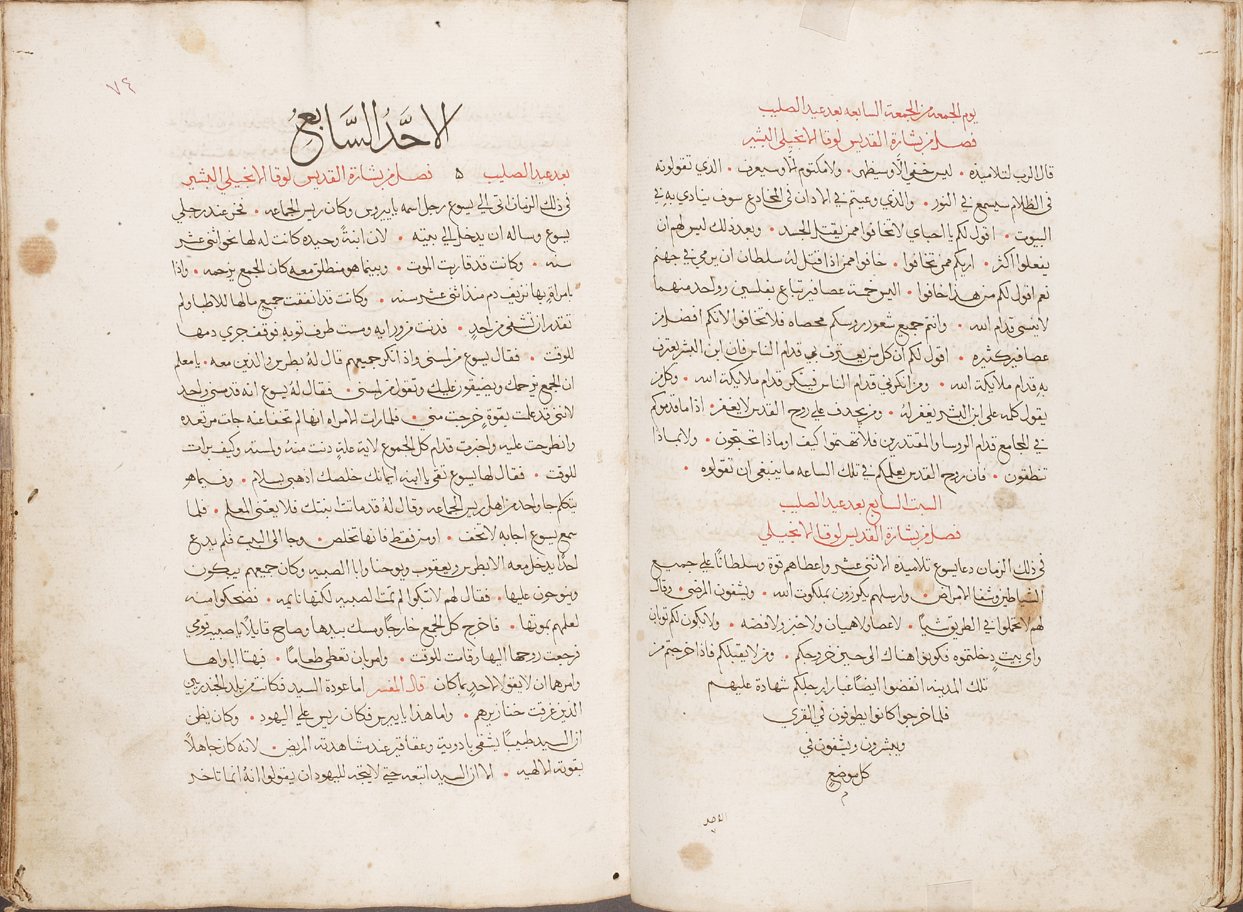 يوم الجمعه من الجمعة السابعه بعد عيد الصليب
فصل من بشارة القديس لوقا الانجيلي البشير
قال الرب لتلاميذه • ليس خفي الا وسيظهر • ولا مكتوم الا وسيعرف • الذي تقولونه
في الظلام سيسمع في النور • والذي وعيتم في الاذان في المخادع سوف ينادي به في
البيوت • اقول لكم يا احباي لا تخافوا ممن يقتل الجسد • وبعد ذلك ليس لهم ان
يفعلوا اكثر • اريكم ممن تخافوا • خافوا ممن اذا قتل له سلطان ان يرمي في جهنم
نعم اقول لكم من هذا خافوا • اليس خمسة عصافير تباع بفلسين وواحد منهما
لا ينسى قدام الله • وانتم جميع شعور روسكم محصاه فلا تخافوا لانكم افضل من
عصافير كثيره • اقول لكم ان كل من يعترف بي قدام الناس فان ابن البشر يعترف
به قدام ملايكة الله • ومن انكرني قدام الناس فينكر قدام ملايكة الله • وكل من
يقول كلمه على ابن البشر يغفر له • ومن يجدف على روح القدس لا يغفر • اذا ما قدموكم
في المجامع قدام الروسا والمقتدرين فلا تهتموا كيف او ماذا تحتجون • ولا بماذا
تنطقون • فان روح القدس يعلمكم في تلك الساعه ما ينبغي ان تقولوه •
السبت السابع بعد عيد الصليب
فصل من بشارة القديس لوقا الانجيلي
في ذلك الزمان دعا يسوع تلاميذه الاثني عشر واعطاهم قوة وسلطانًا على جميع
الشياطين وشفا الامراض • وارسلهم يكرزون بملكوت الله • ويشفون المرضى • وقال
لهم لا تحملوا في الطريق شيًا • لا عصا ولا هميان ولا خبز ولا فضه • ولا يكون لكم ثوبان
واي بيت دخلتموه فكونوا هناك الى حين خروجكم • ومن لا يقبلكم فاذا خرجتم من
تلك المدينه انفضوا ايضًا غبار ارجلكم شهادة عليهم
فلما خرجوا كانوا يطوفون في القرى
ويبشرون ويشفون في
كل موضع
م
الاحد
٧٤
الاحَدُ السَّابِعُ
بعد عيد الصليب ۵ فصل من بشارة القديس لوقا الانجيلي البشير
في ذلك الزمان اتى الى يسوع رجل اسمه يايروس وكان ريس الجماعه • فخر عند رجلي
يسوع وساله ان يدخل الى بيته • لان ابنةً وحيده كانت له لها نحو اثنى عشر
سنه • وكانت قد قاربت الموت • وبينما هو منطلق معه كان الجمع يزحمه • واذا
بامراةٍ بها نزيف دم منذ اثنى عشر سنه • وكانت قد انفقت جميع مالها للاطبا ولم
تقدر ان تشفى من احدٍ • فدنت من ورايه ومست طرف ثوبه فوقف جري دمها
للوقت • فقال يسوع من لمسني واذ انكر جميعهم قال له بطرس والذين معه • يا معلم
ان الجمع يزحمك ويضيقون عليك وتقول من لمسني • فقال له يسوع انه قد مسني واحد
لانني قد علمت بقوةٍ خرجت مني • فلما رات الامراه انها لم تخفا عنه جات مرتعده
وانطرحت عليه واخبرت قدام كل الجموع لاية علةٍ دنت منه ولمسته وكيف برات
للوقت • فقال لها يسوع ثقي يا ابنه ايمانك خلصك اذهبي بسلام • وفيما هو
يتكلم جا واحد من اهل ريس الجماعه وقال له قد ماتت ابنتك فلا يعنى المعلم • فلما
سمع يسوع اجابه لا تخف • اومن فقط فانها تخلص • وجا الى البيت فلم يدع
احدًا يدخل معه الا بطرس ويعقوب ويوحنا وابا الصبيه وكان جميعهم يبكون
وينوحون عليها • فقال لهم لا تبكوا لم تمت الصبيه لكنها نايمه • فضحكوا منه
لعلمهم بموتها • فاخرج كل الجمع خارجًا ومسك بيدها وصاح قايلًا يا صبيه قومي
فرجعت روحها اليها وقامت للوقت • وامر بان تعطى طعامًا • فبهتا ابواها
وامرهما ان لا يقولا لاحدٍ بما كان قال المفسر اما عودة السيد فكانت من بلد الجدريين
الذين غرقت خنازيرهم • واما هذا يايروس فكان ريس على اليهود • وكان يظن
ان السيد طبيبًا يشفي بادويةٍ وعقاقير عند مشاهدته المريض • لانه كان جاهلًا
بقوته الالهيه • الا ان السيد اتبعه حتى لا يتجه لليهود ان يقولوا انه انما تاخر